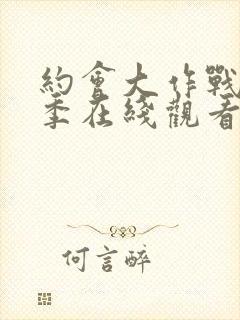 約會大作戰
季在綫觀看
何言醉